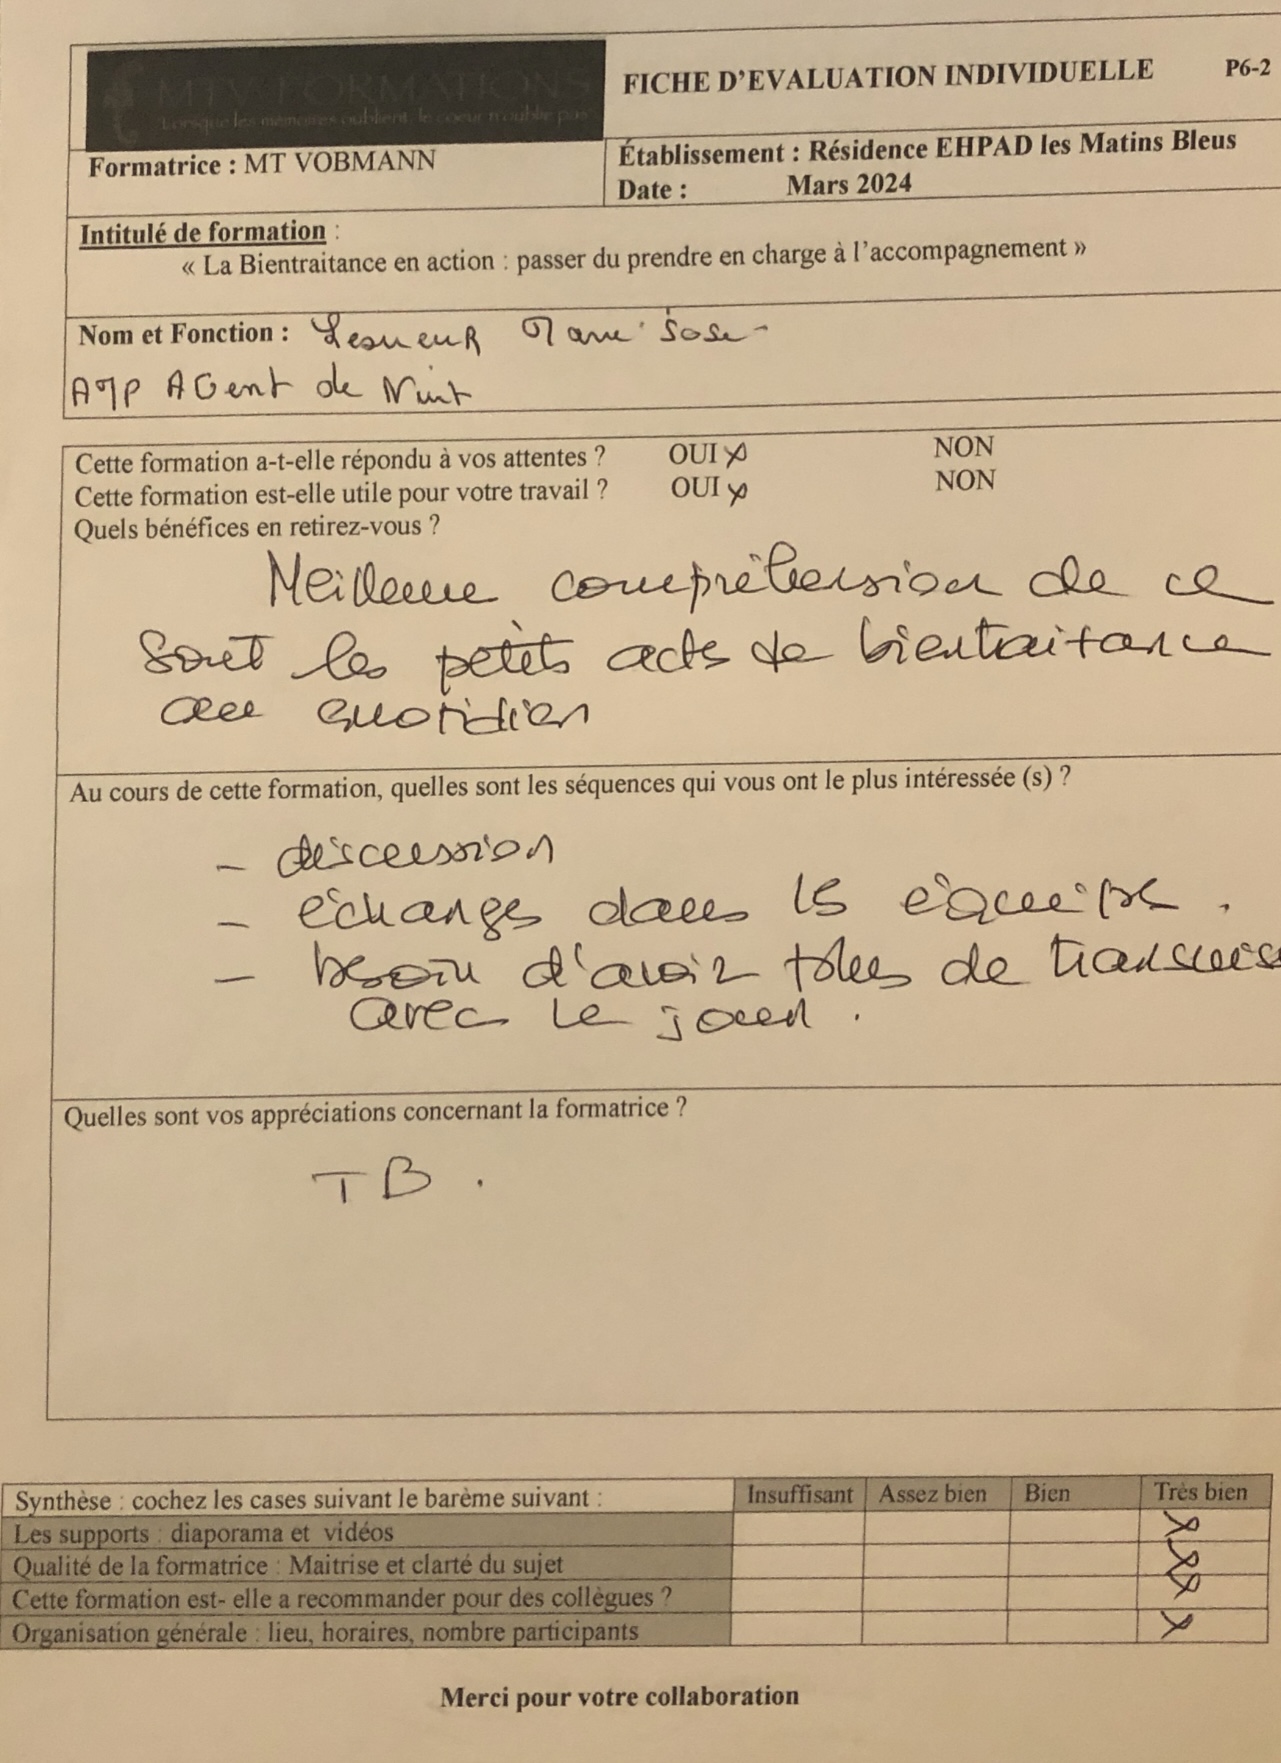 MTV FORMATIONS
"Lorsque les mémoires oublient, le coeur n'oublie pas"
FICHE D'EVALUATION INDIVIDUELLE P6-2
Formatrice : MT VOBMANN
Établissement : Résidence EHPAD les Matins Bleus
Date : Mars 2024
Intitulé de formation :
« La Bientraitance en action : passer du prendre en charge à l'accompagnement »
Nom et Fonction : Lesueur
AMP AGent de Nuit
Cette formation a-t-elle répondu à vos attentes ? OUI x NON
Cette formation est-elle utile pour votre travail ? OUI x NON
Quels bénéfices en retirez-vous ?
Meilleure compréhension de ce
sont les petits acts de bientraitance
au quotidien
Au cours de cette formation, quelles sont les séquences qui vous ont le plus intéressée (s) ?
- discussion
- échanges dans l'équipe .
- besoin d'avoir de transmis
avec le jour .
Quelles sont vos appréciations concernant la formatrice ?
TB .
Synthèse : cochez les cases suivant le barème suivant : Insuffisant Assez bien Bien Très bien
Les supports : diaporama et vidéos x
Qualité de la formatrice : Maitrise et clarté du sujet x
Cette formation est- elle a recommander pour des collègues ? x
Organisation générale : lieu, horaires, nombre participants x
Merci pour votre collaboration